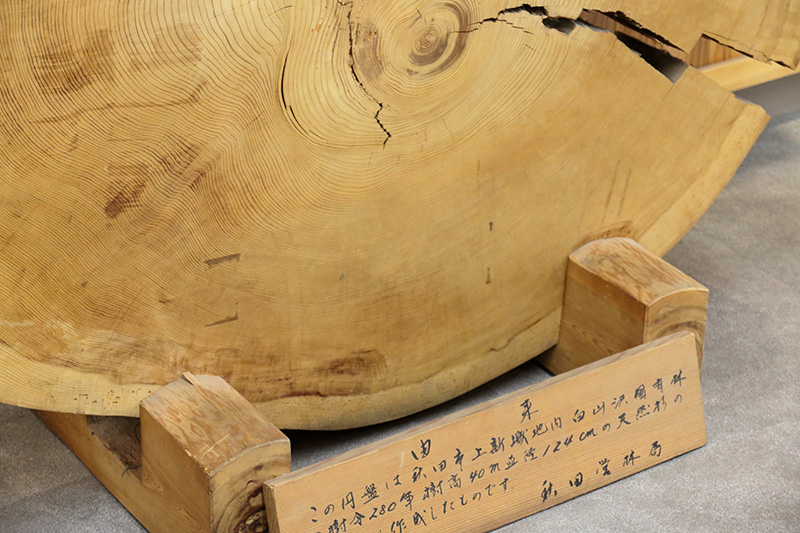 由来
この円盤は秋田市上新城地内白山沢国有林
樹令280年樹高40m直径124cmの天然杉の
作成したものです。
秋田営林局